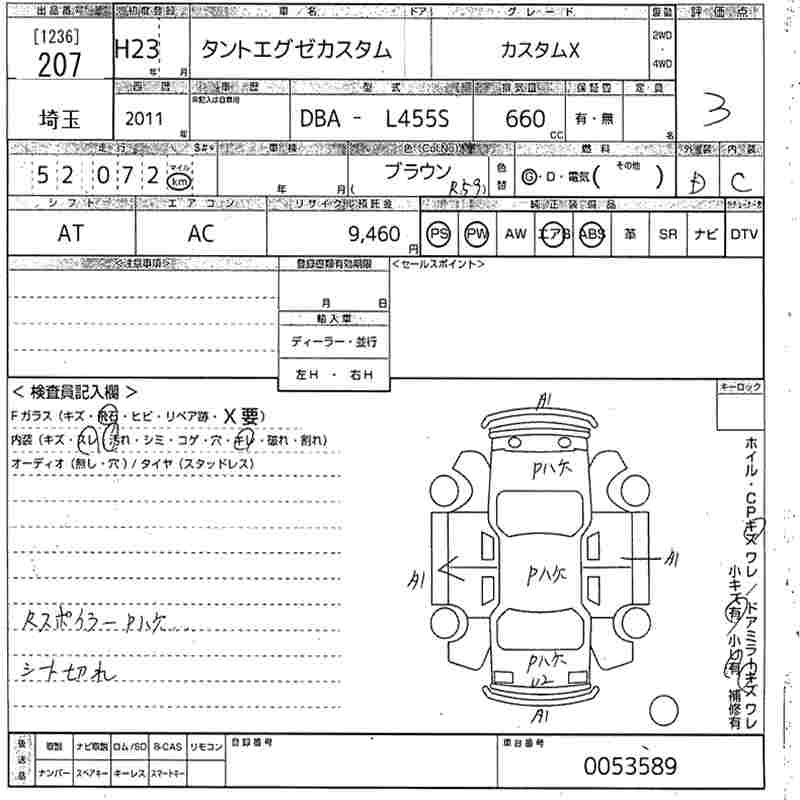 出品番号 初度登録 車名 ドア グレード 駆動 評価点
[1236]
207 H23 年 月 タントエグゼカスタム カスタムX 2WD・4WD
3
埼玉 西暦 車歴 型式 排気量 保証書 定員
※記入は自家用
2011 年 DBA - L455S 660 CC 有・無 名
走行 S#* 車検 色(Col.No) 燃料 外装 内装
52072 マイル km 年 月 ( ブラウン R59) 色替 G・D・電気( その他 ) D C
シフト エアコン リサイクル預託金 純正装備品
AT AC 9,460円 PS PW AW エアB ABS 革 SR ナビ DTV
<注意事項> 登録書類有効期限 <セールスポイント>
月 日
輸入車
ディーラー・並行
左H ・ 右H
< 検査員記入欄 > キーロック
Fガラス (キズ・飛石・ヒビ・リペア跡・X要)
内装 (キズ・スレ・汚れ・シミ・コゲ・穴・キレ・破れ・割れ)
オーディオ (無し・穴) / タイヤ (スタッドレス)
A1
Pハケ
A1
A1
Pハケ
Pハケ
U2
A1
ホイル・CPキズ ワレ/ドアミラーキズ ワレ
小キズ有/小凹有 補修有
スポイラーPハケ...
シート切れ
後送品 取説 ナビ取説 ロム/SD B-CAS リモコン 登録番号 車台番号
ナンバー スペアキー キーレス スマートキー
0053589